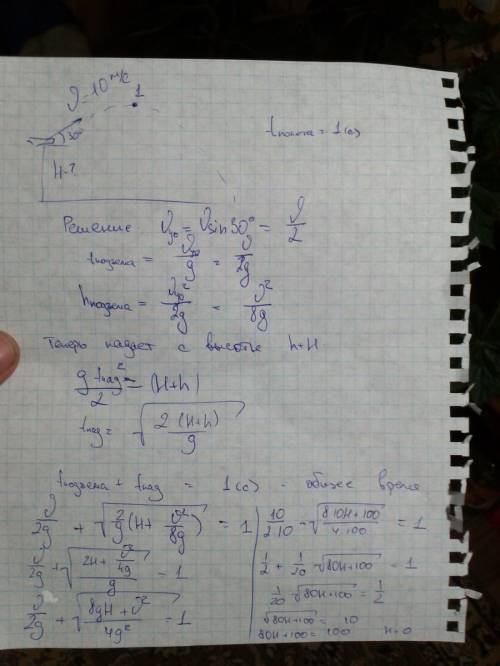 υ=10 м/с
1
30°
H-?
tполета = 1(с)
Решение υy0 = υsin30° = υ/2
tподъема = υy0/g = υ/2g
hподъема = υy0²/2g = υ²/8g
Теперь падает с высоты h+H
g tпад²/2 = (H+h)
tпад = √(2(H+h)/g)
tподъема + tпад = 1(с) - общее время
υ/2g + √(2/g (H + υ²/8g)) = 1
υ/2g + √((2H + υ²/4g)/g) = 1
υ/2g + √((8gH + υ²)/4g²) = 1
10/2·10 + √((8·10H+100)/4·100) = 1
1/2 + 1/20 √(80H+100) = 1
1/20 √(80H+100) = 1/2
√(80H+100) = 10
80H+100 = 100 H=0